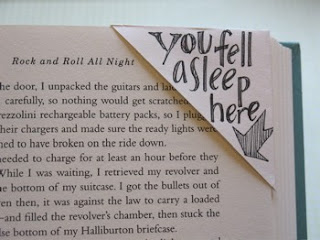 Rock and Roll All Night
you fell
asleep
here
he door, I unpacked the guitars and
carefully, so nothing would get scratched
rezzolini rechargeable battery packs, so I
heir chargers and made sure the ready lights were
ned to have broken on the ride down.
needed to charge for at least an hour before they
While I was waiting, I retrieved my revolver and
he bottom of my suitcase. I got the bullets out of
en then, it was against the law to carry a loaded
—and filled the revolver's chamber, then stuck the
lse bottom of my Halliburton briefcase.